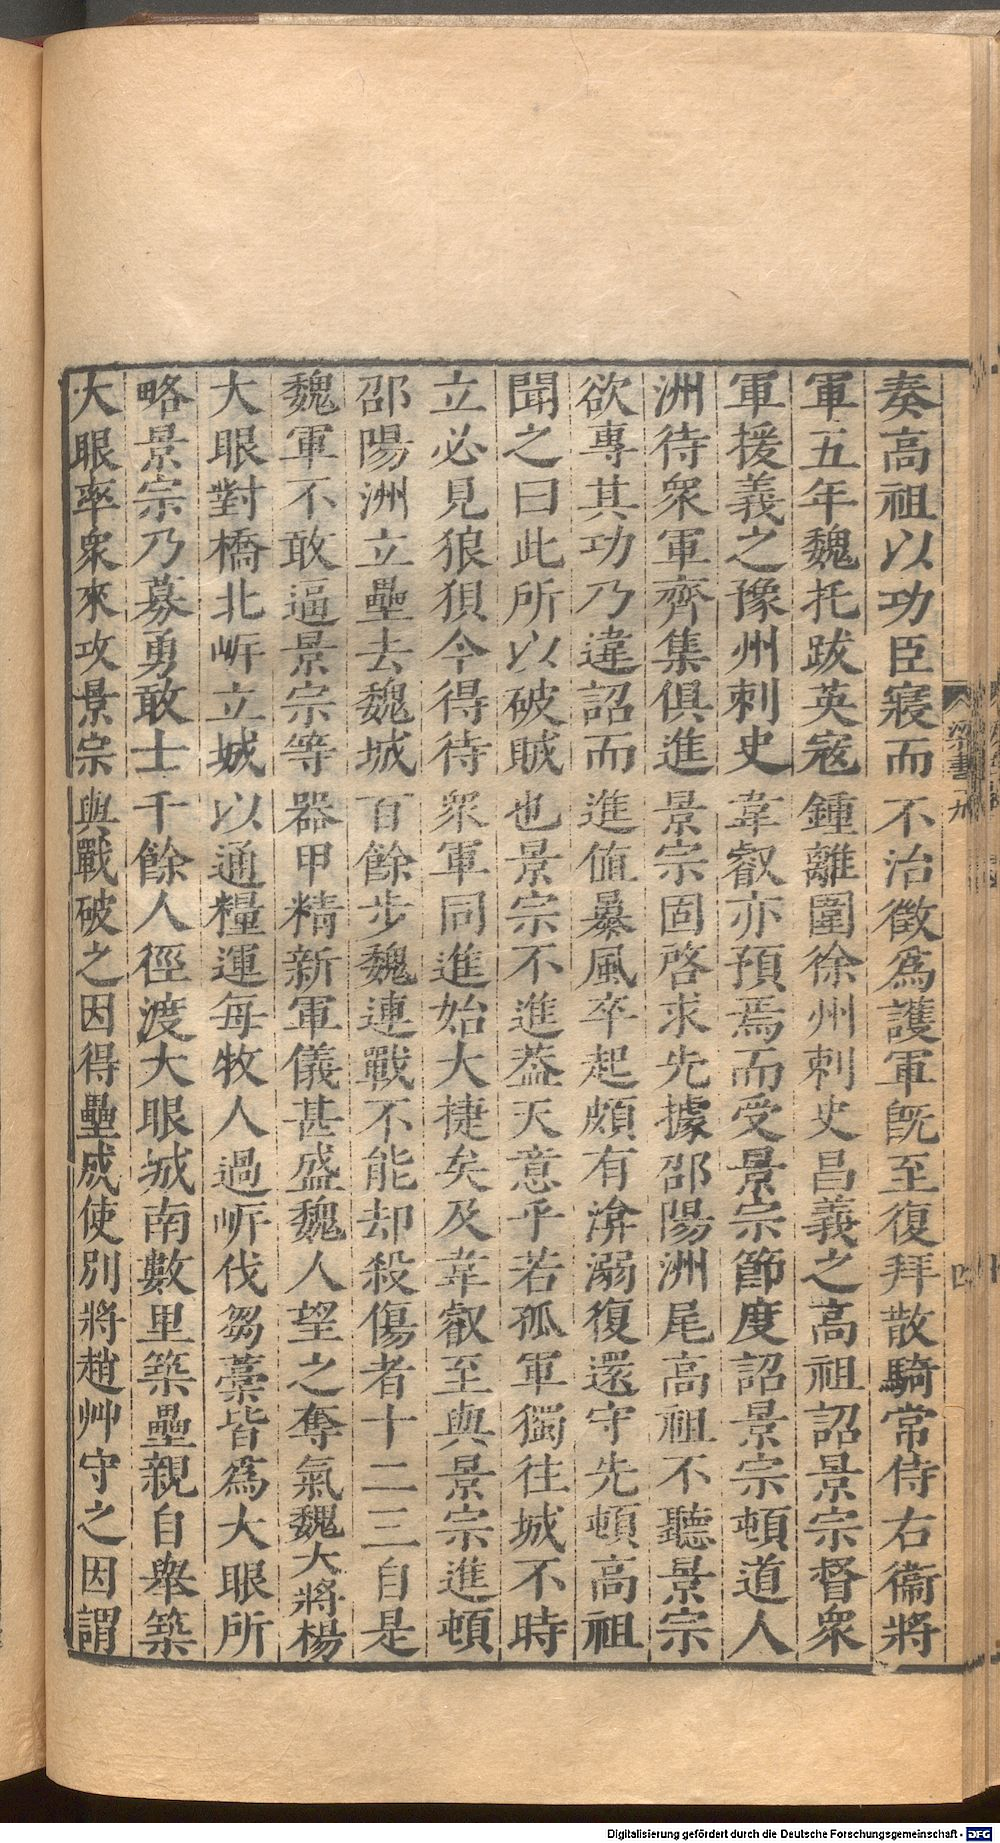 奏高祖以功臣寢而不治徵爲護軍旣至復拜散騎常侍右衞將
軍五年魏托跋英寇鍾離圍徐州刺史昌義之高祖詔景宗督衆
軍援義之豫州刺史韋叡亦預焉而受景宗節度詔景宗頓道人
洲待衆軍齊集俱進景宗固啓求先據邵陽洲尾高祖不聽景宗
欲專其功乃違詔而進值暴風卒起頗有渰溺復還守先頓高祖
聞之曰此所以破賊也景宗不進葢天意乎若孤軍獨往城不時
立必見狼狽今得待衆軍同進始大捷矣及韋叡至與景宗進頓
邵陽洲立壘去魏城百餘步魏連戰不能却殺傷者十二三自是
魏軍不敢逼景宗等器甲精新軍儀甚盛魏人望之奪氣魏大將楊
大眼對橋北岍立城以通糧運每牧人過岍伐芻藁皆爲大眼所
略景宗乃募勇敢士千餘人徑渡大眼城南數里築壘親自舉築
大眼率衆來攻景宗與戰破之因得壘成使別將趙艸守之因謂
梁書九
四
Digitalisierung gefördert durch die Deutsche Forschungsgemeinschaft - DFG